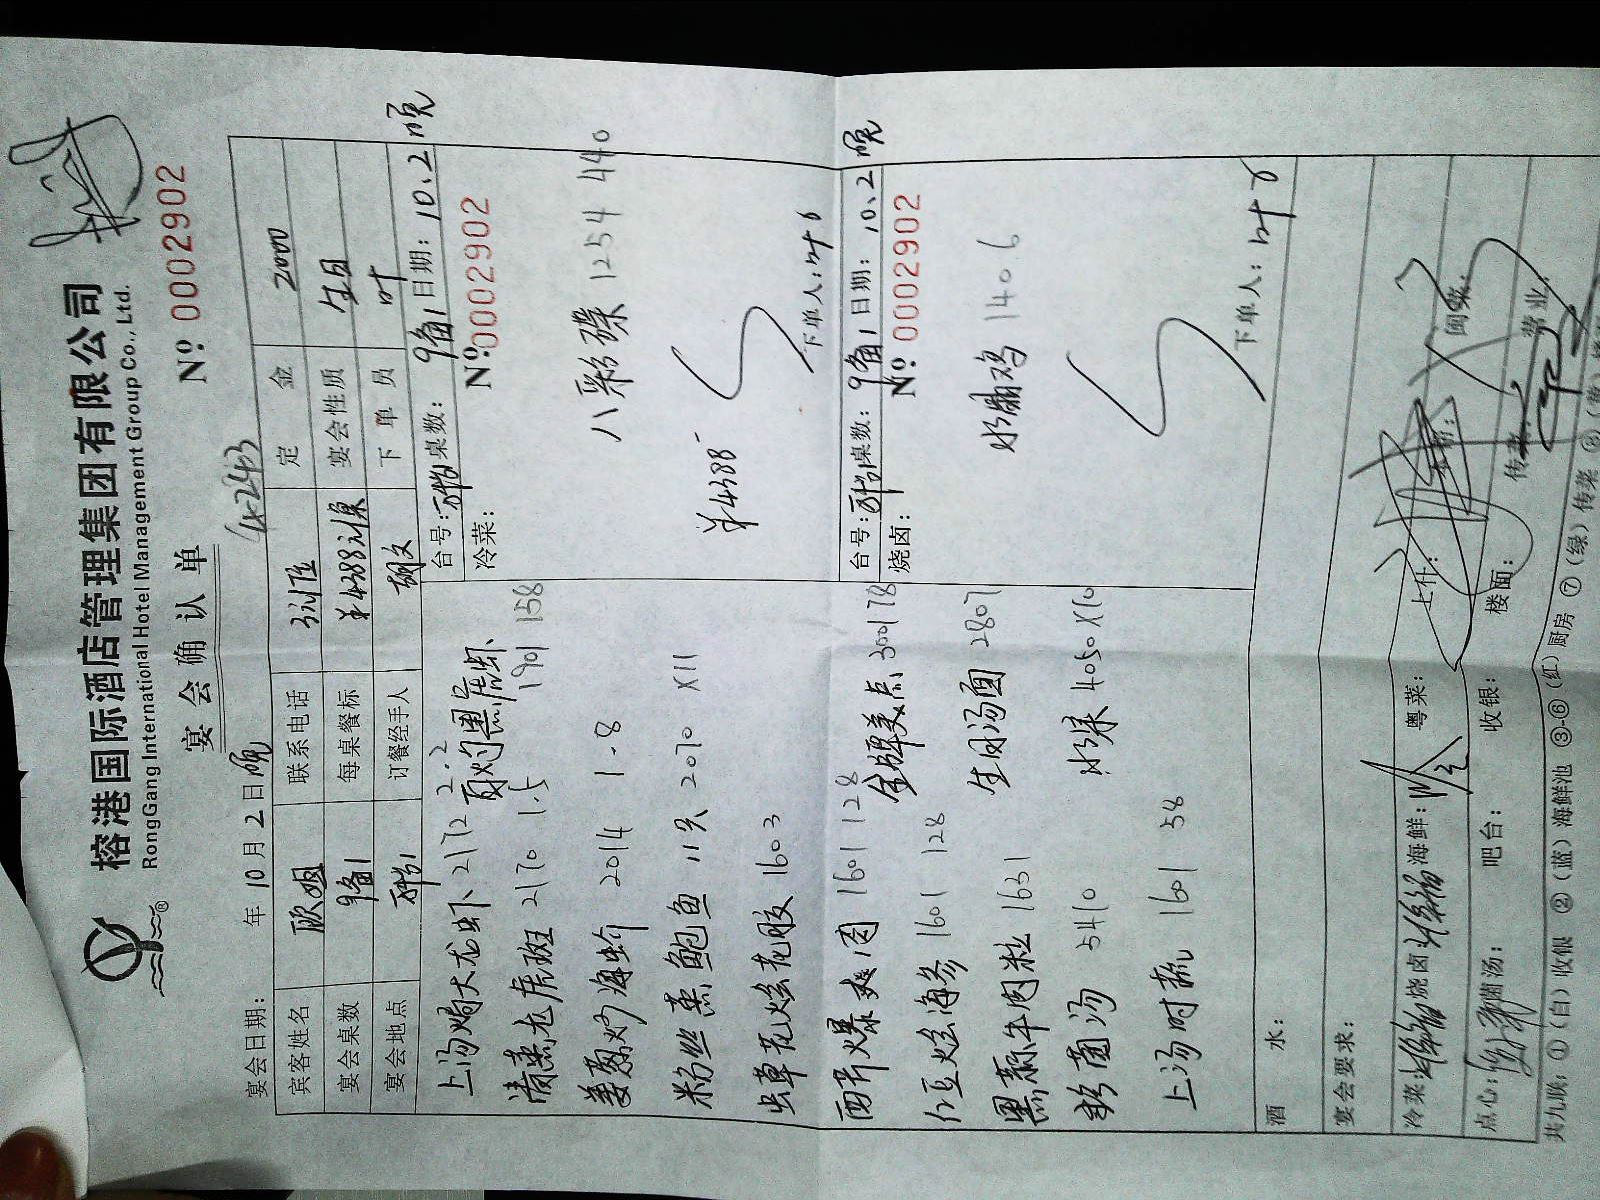 榕港国际酒店管理集团有限公司
RongGang International Hotel Management Group Co., Ltd.
宴会确认单
Nº 0002902
宴会日期： 年 10月2日晚
宾客姓名 欧姐 联系电话 定金 2000
宴会桌数 9备1 每桌餐标 ¥4388 宴会性质 生日
宴会地点 订餐经手人 下单员 叶
台号： 桌数：9备1 日期：10.2 晚
冷菜： Nº 0002902
八彩碟 1254 440
¥4388
下单人：叶
台号： 桌数：9备1 日期：10.2 晚
烧卤： Nº 0002902
鸡 1406
下单人：叶
上汤焗大龙虾 2172 2.2
白灼黑虎虾 1901 158
清蒸老虎斑 2170 1.5
姜葱炒海蛏 2014 1.8
粉丝蒸鲍鱼 11只 2070 X11
虫草花烩花胶 1603
西芹爆爽肉 1601 128
金牌美点 3001 78
红豆烩海参 1601 128
生肉汤面 2807
黑蒜牛肉粒 1631
水果 4050 X10
菌汤 5410
上汤时蔬 1601 58
酒水：
宴会要求：
冷菜 烧卤 海鲜： 粤菜： 上什： 闽菜：
点心： 菌汤： 吧台： 收银： 楼面： 传菜： 营业：
共九联：①（白）收银 ②（蓝）海鲜池 ③-⑥（红）厨房 ⑦（绿）传菜 ⑧（黄）